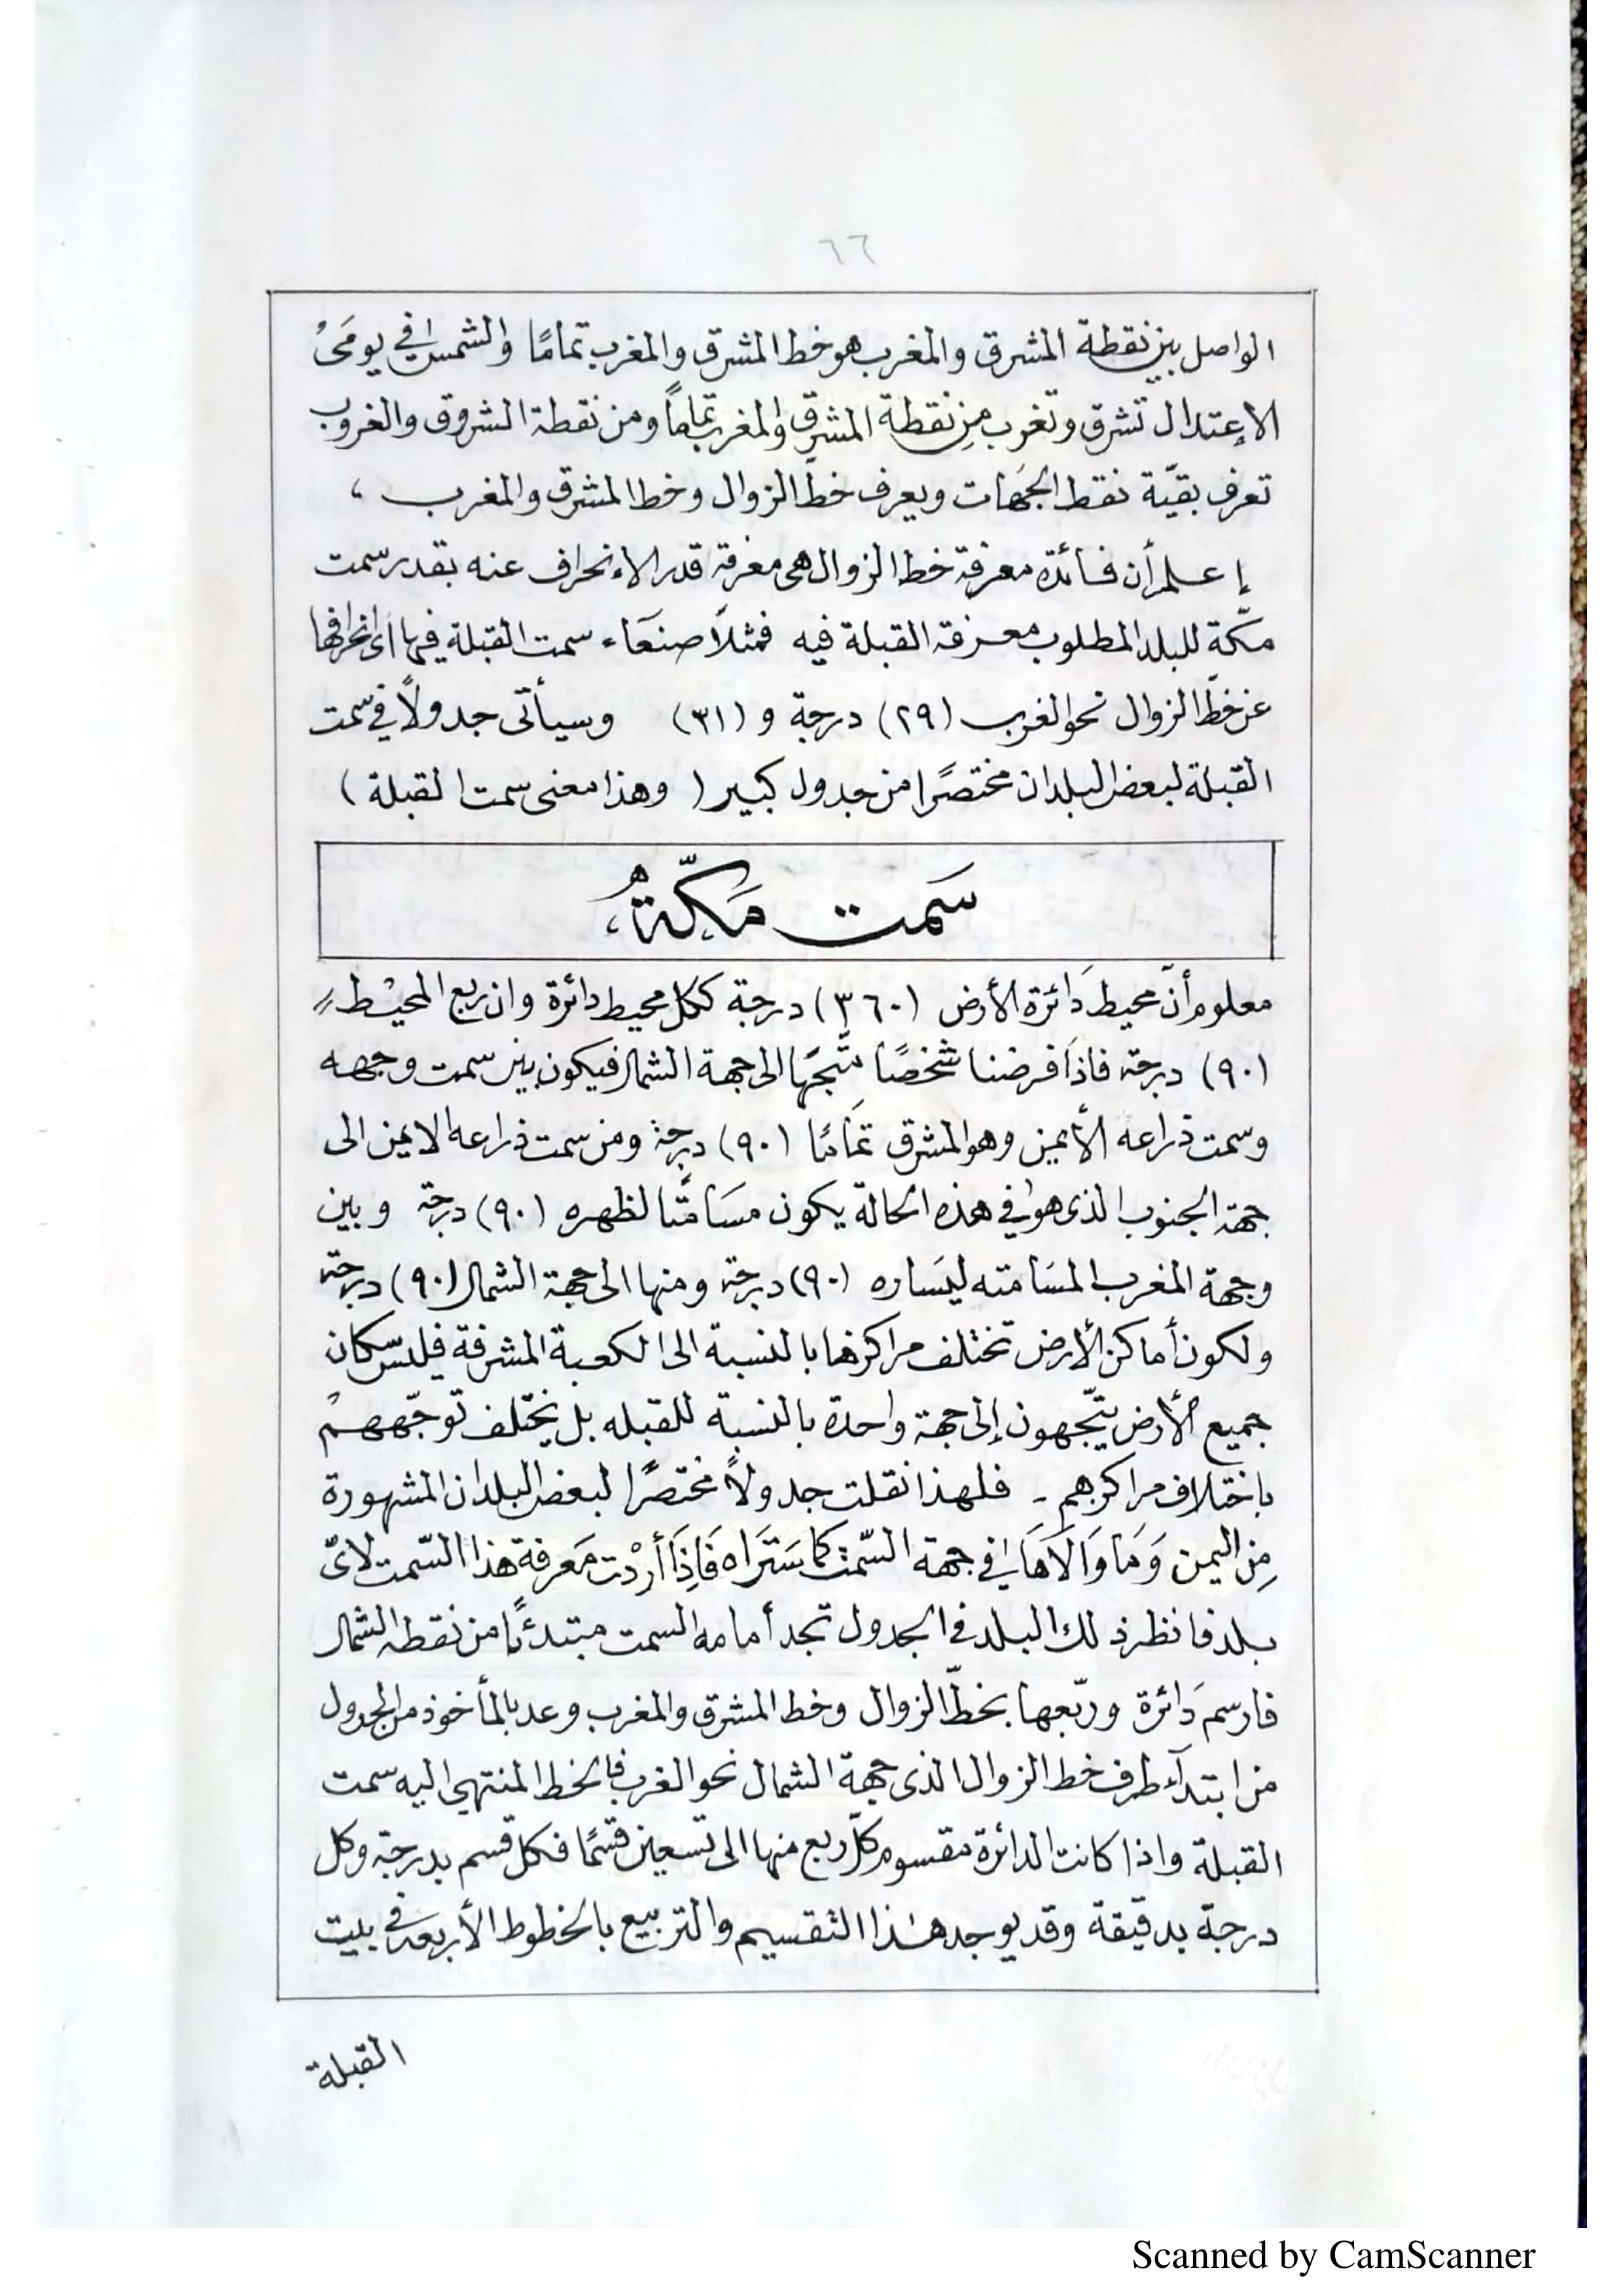 ٦٦
الواصل بين نقطة المشرق والمغرب هو خط المشرق والمغرب تمامًا والشمس في يومَيْ
الإعتدال تشرق وتغرب مِن نقطة المشرق والمغرب تمامًا ومن نقطة الشروق والغروب
تعرف بقيّة نقط الجهَات ويعرف خطّ الزوال وخط المشرق والمغرب ،
إعلم أن فائدة معرفة خط الزوال هي معرفة قدر الانحراف عنه بقدر سمت
مكّة للبلد المطلوب معرفة القبلة فيه فمثلاً صنعَاء سمت القبلة فيها اى انحرافها
عن خطّ الزوال نحو الغرب (٢٩) درجة و (٣١) وسيأتى جدولاً في سمت
القبلة لبعض البلدان مختصرًا من جدول كبير ( وهذا معنى سمت القبلة )
سَمت مَكّة ،
معلوم أنّ محيط دَائرة الأرض (٣٦٠) درجة ككل محيط دائرة وان ربع المحيْط =
(٩٠) درجة فاذَا فرضنا شخصًا متَّجِهَا الى جهة الشمال فيكون بين سمت وجهه
وسمت ذراعه الأيمن وهو المشرق تمَامًا (٩٠) درجة ومن سمت ذراعه الايمن الى
جهة الجنوب الذى هو في هذه الحالة يكون مسَامتًا لظهره (٩٠) درجة وبين
وجهة المغرب المسَامته ليسَاره (٩٠) درجة ومنها الى جهة الشمال (٩٠) درجة
ولكون أماكن الأرض تختلف مراكزها بالنسبة الى الكعبة المشرفة فليس سكان
جميع الأرض يتّجهون إلى جهة واحدة بالنسبة للقبله بل يختلف توجّههمْ
باختلاف مراكزهم - فلهذا نقلت جدولاً مختصرًا لبعض البلدان المشهورة
مِن اليمن وَمَا وَالَاهَا في جهة السّمت كما سَتَراه فَاذِا أردْت مَعرفة هذا السّمت لائّ
بلد فانظر ذلك البلد في الجدول تجد أمامه السمت مبتدئًا من نقطه الشمال
فارسم دَائرة وربّعها بخطّ الزوال وخط المشرق والمغرب وعد بالمأخوذ من الجدول
من ابتدآء طرف خط الزوال الذى جهة الشمال نحو الغرب فالخط المنتهى اليه سمت
القبلة واذا كانت الدائرة مقسوم كلّ ربع منها الى تسعين قسمًا فكل قسم بدرجة وكل
درجة بدقيقة وقد يوجد هذا التقسيم والتربيع بالخطوط الأربعة في بيت
القبلة
Scanned by CamScanner